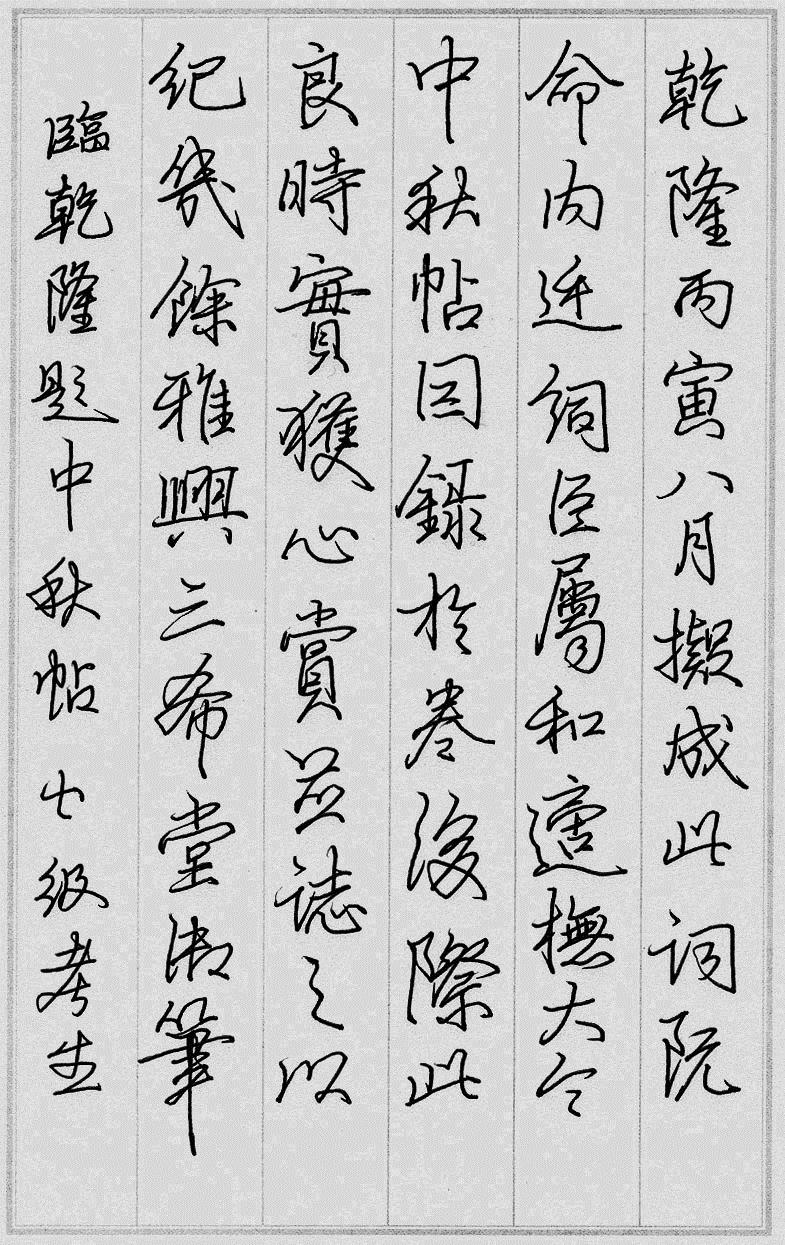 乾隆丙寅八月擬成此詞既
命内廷詞臣屬和適撫大令
中秋帖因錄於卷後際此
良時實獲心賞並誌之以
紀幾餘雅興云三希堂御筆
臨乾隆題中秋帖 七級考生